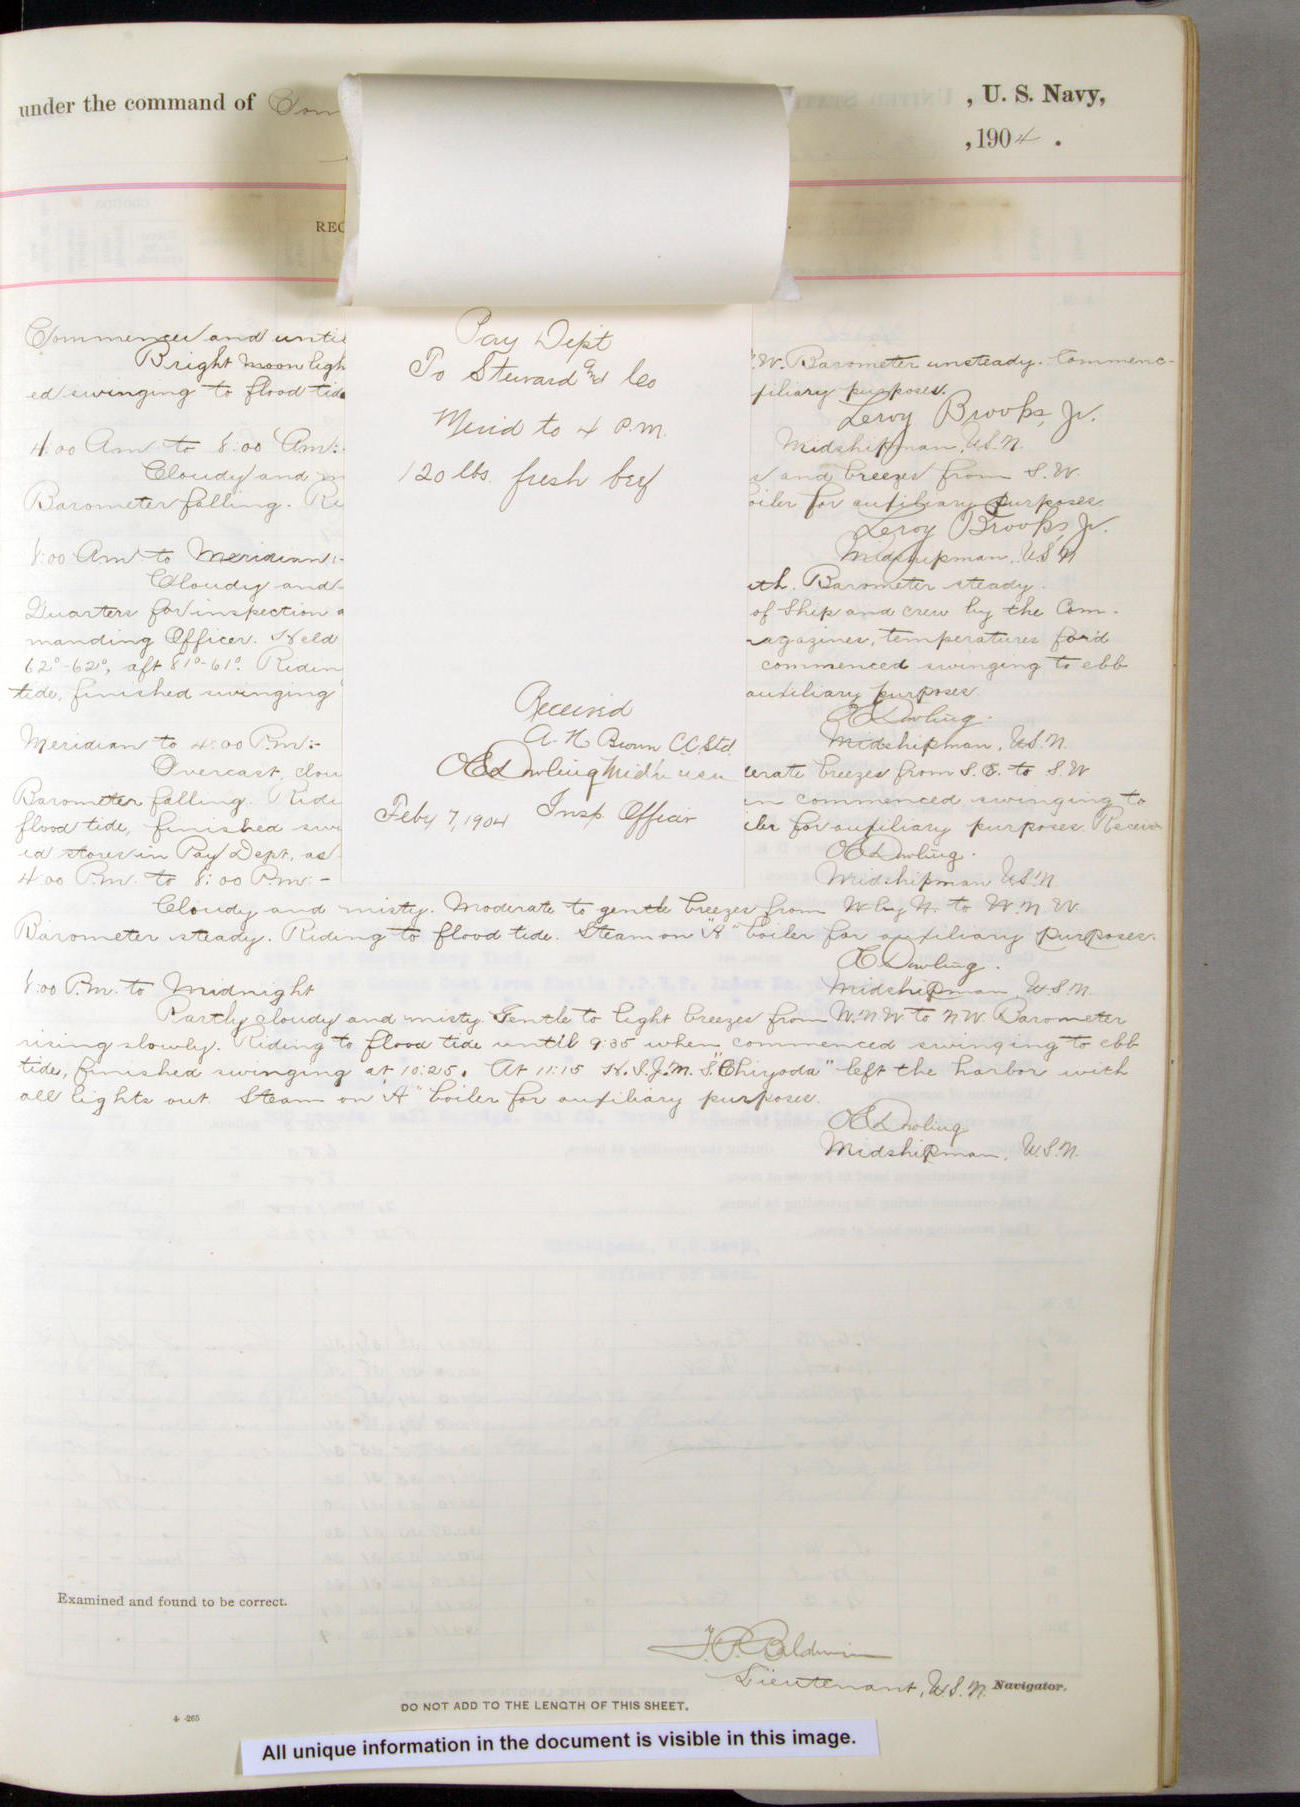 under the command of Com
, U. S. Navy,
, 1904.
REC
Commences and until
Bright moon ligh
ed swinging to flood tide
W. Barometer unsteady. Commenc-
xiliary purposes.
Leroy Brooks, Jr.
Midshipman, U.S.N.
4:00 Am. to 8:00 Am:-
Cloudy and m
Barometer falling. Ri
s and breezes from S.W.
oiler for auxiliary purposes.
Leroy Brooks, Jr.
Midshipman, U.S.N
8:00 Am. to Meridian:-
Cloudy and
Quarters for inspection a
manding Officer. Held
62°-62°, aft 81°-61°. Ridin
tide, finished swinging
uth. Barometer steady.
of Ship and crew by the Com-
magazines, temperatures for'd
commenced swinging to ebb
auxiliary purposes.
Dowling.
Midshipman, U.S.N.
Meridian to 4:00 P.m:-
Overcast, clou
Barometer falling. Ridi
flood tide, finished swi
ed stores in Pay Dept, as
erate breezes from S.E. to S.W
en commenced swinging to
iler for auxiliary purposes. Receiv
Dowling.
Midshipman U.S.N.
4:00 P.m. to 8:00 P.m:-
Cloudy and misty. Moderate to gentle breezes from W by N. to W.N.W.
Barometer steady. Riding to flood tide. Steam on "A" boiler for auxiliary purposes.
Dowling.
Midshipman, U.S.N.
8:00 P.m. to Midnight
Partly cloudy and misty. Gentle to light breezes from W.N.W to N.W. Barometer
rising slowly. Riding to flood tide until 9:35 when commenced swinging to ebb
tide, finished swinging at 10:25. At 11:15 H.I.J.M.S. "Chiyoda" left the harbor with
all lights out. Steam on "A" boiler for auxiliary purposes.
Dowling
Midshipman, U.S.N.
Pay Dept
To Steward and Co
Merid to 4 P.M.
120 lbs. fresh beef
Received
A. H. Brown C.C. Std.
Dowling Midn usn
Feby 7, 1904 Insp. Officer
Examined and found to be correct.
Baldwin
Lieutenant, U.S.N. Navigator.
DO NOT ADD TO THE LENGTH OF THIS SHEET.
4-265
All unique information in the document is visible in this image.